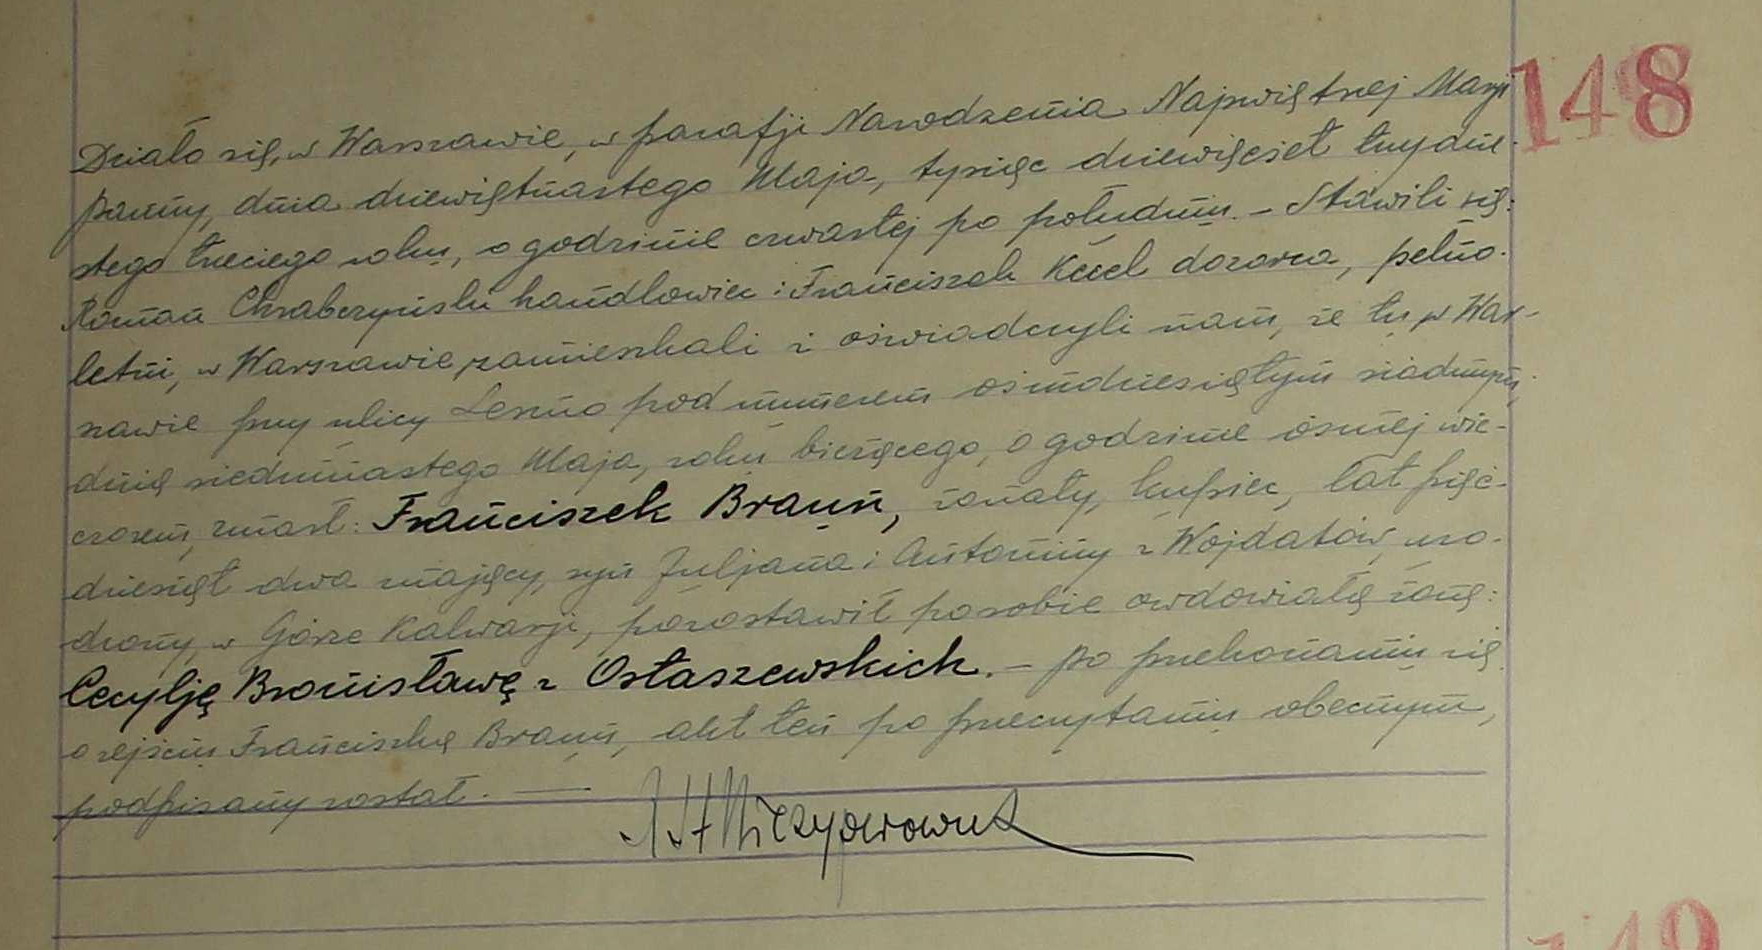 148
Działo się, w Warszawie, w parafji Narodzenia Najświętszej Maryi
Panny, dnia dziewiętnastego Maja, tysiąc dziewięćset trzydzie-
stego trzeciego roku, o godzinie czwartej po południu. – Stawili się:
Roman Chrabczyński handlowiec i Franciszek dozorca, pełno-
letni, w Warszawie zamieszkali i oświadczyli nam, że tu w War-
szawie przy ulicy Leszno pod numerem ośmdziesiątym siódmym,
dnia siedmnastego Maja, roku bieżącego, o godzinie ósmej wie-
czorem, zmarł: Franciszek Braun, żonaty, kupiec, lat pięć-
dziesiąt dwa mający, syn Juljana i Antoniny z Wojdatów, uro-
dzony, w Górze Kalwarji, pozostawił po sobie owdowiałą żonę:
Cecylję Bronisławę z Ostaszewskich. – Po przekonaniu się
o zejściu Franciszka Braun, akt ten po przeczytaniu obecnym,
podpisany został. –